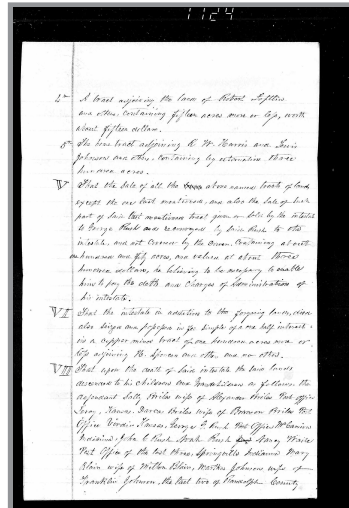 1124
4th A tract adjoining the lands of Robert
and others, containing fifteen acres more or less, worth
about fifteen dollars.
5th The home tract adjoining R. W. Harris and Irvin
Johnson and others, containing by estimation three
hundred acres.
V That the sale of all the above named tracts of land
except the one last mentioned, and also the sale of
part of said last mentioned tract given or sold by the intestate
to George Rush and reconveyed by said Rush to this
intestate, and not covered by the dower, containing about
one hundred and fifty acres, and valued at about three
hundred dollars, is believed to be necessary to enable
him to pay the debts and charges of administration of
his intestate.
VI That the intestate in addition to the forgoing lands, died
also seized and possessed in fee simple of a one half interest
in a copper mine tract of one hundred acres more or
less adjoining H. and others and no other.
VII That upon the death of said intestate the said lands
descended to his children and grandchildren as follows: the
defendant Sally Briles wife of Briles Post office
Leroy, Kansas. Briles wife of Briles Post
Office Verdi, Kansas, George P. Rush Post Office
Indiana, John C. Rush, Noah Rush Nancy
Post Office of the last three, Springville Indiana Mary
Blair wife of Milton Blair, Martha Johnson wife of
Franklin Johnson, the last two of Randolph County